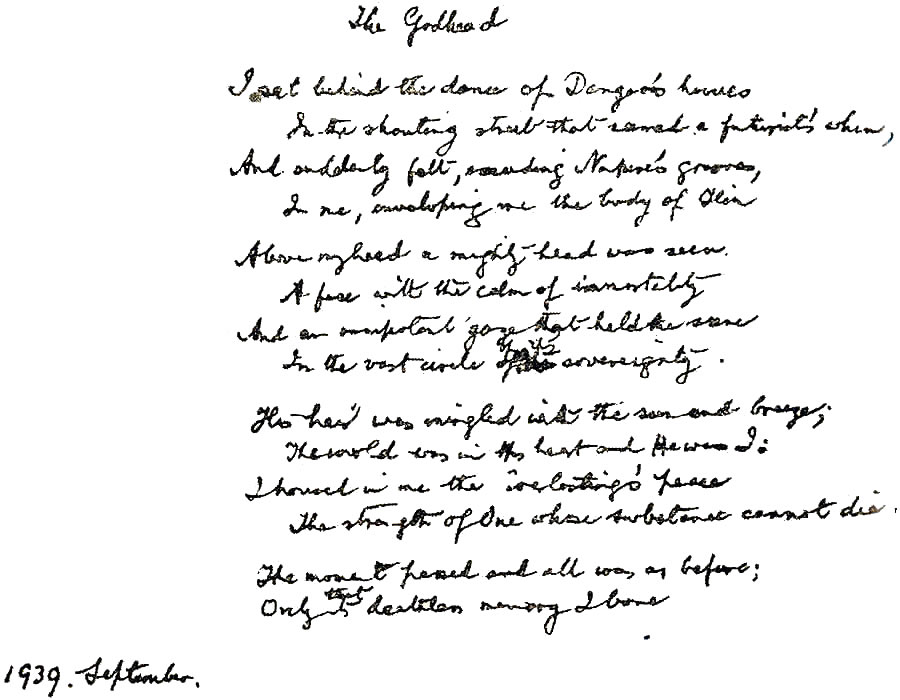 The Godhead
I sat behind the dance of Danger's hooves
In the shouting street that seemed a futurist's whim,
And suddenly felt, exceeding Nature's grooves,
In me, enveloping me the body of Him
Above my head a mighty head was seen.
A face with the calm of immortality
And an omnipotent gaze that held the scene
In the vast circle of its sovereignty.
His hair was mingled with the sun and breeze;
The world was in His heart and He was I:
I housed in me the Everlasting's peace
The strength of One whose substance cannot die.
The moment passed and all was as before;
Only that deathless memory I bore
1939. September.